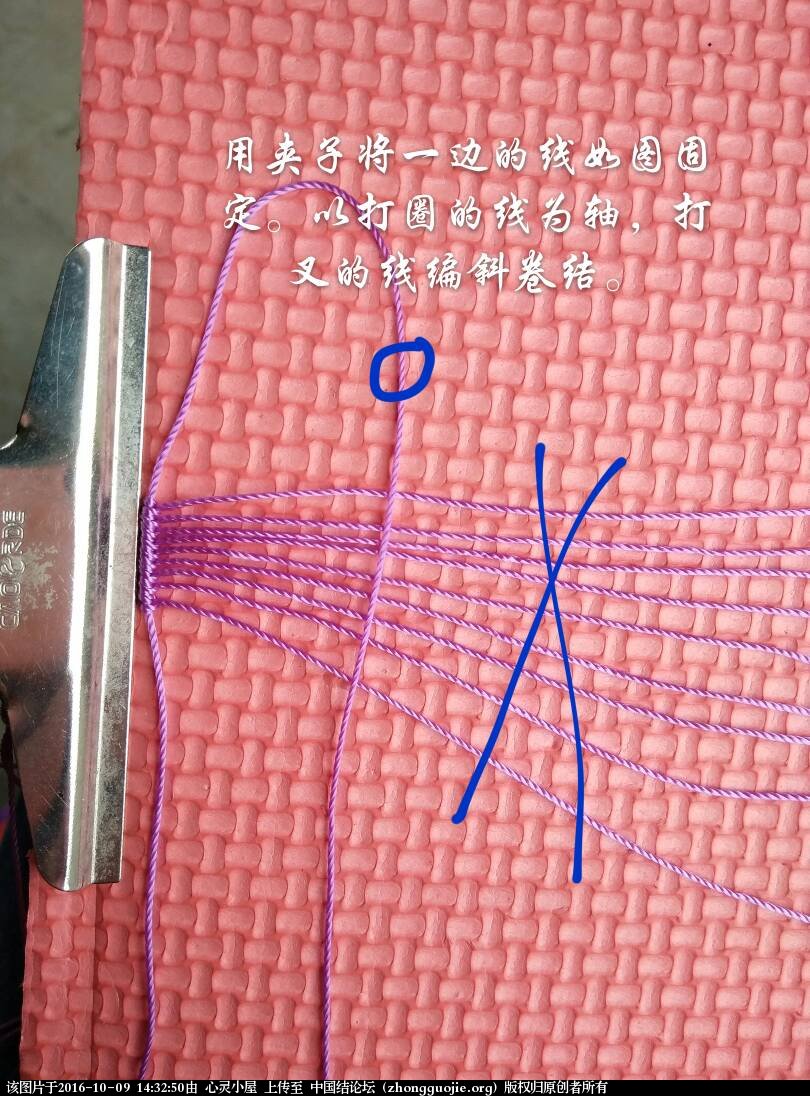 用夹子将一边的线如图固
定。以打圈的线为轴，打
叉的线编斜卷结。
该图片于2016-10-09 14:32:50由 心灵小屋 上传至 中国结论坛 (zhongguojie.org) 版权归原创者所有